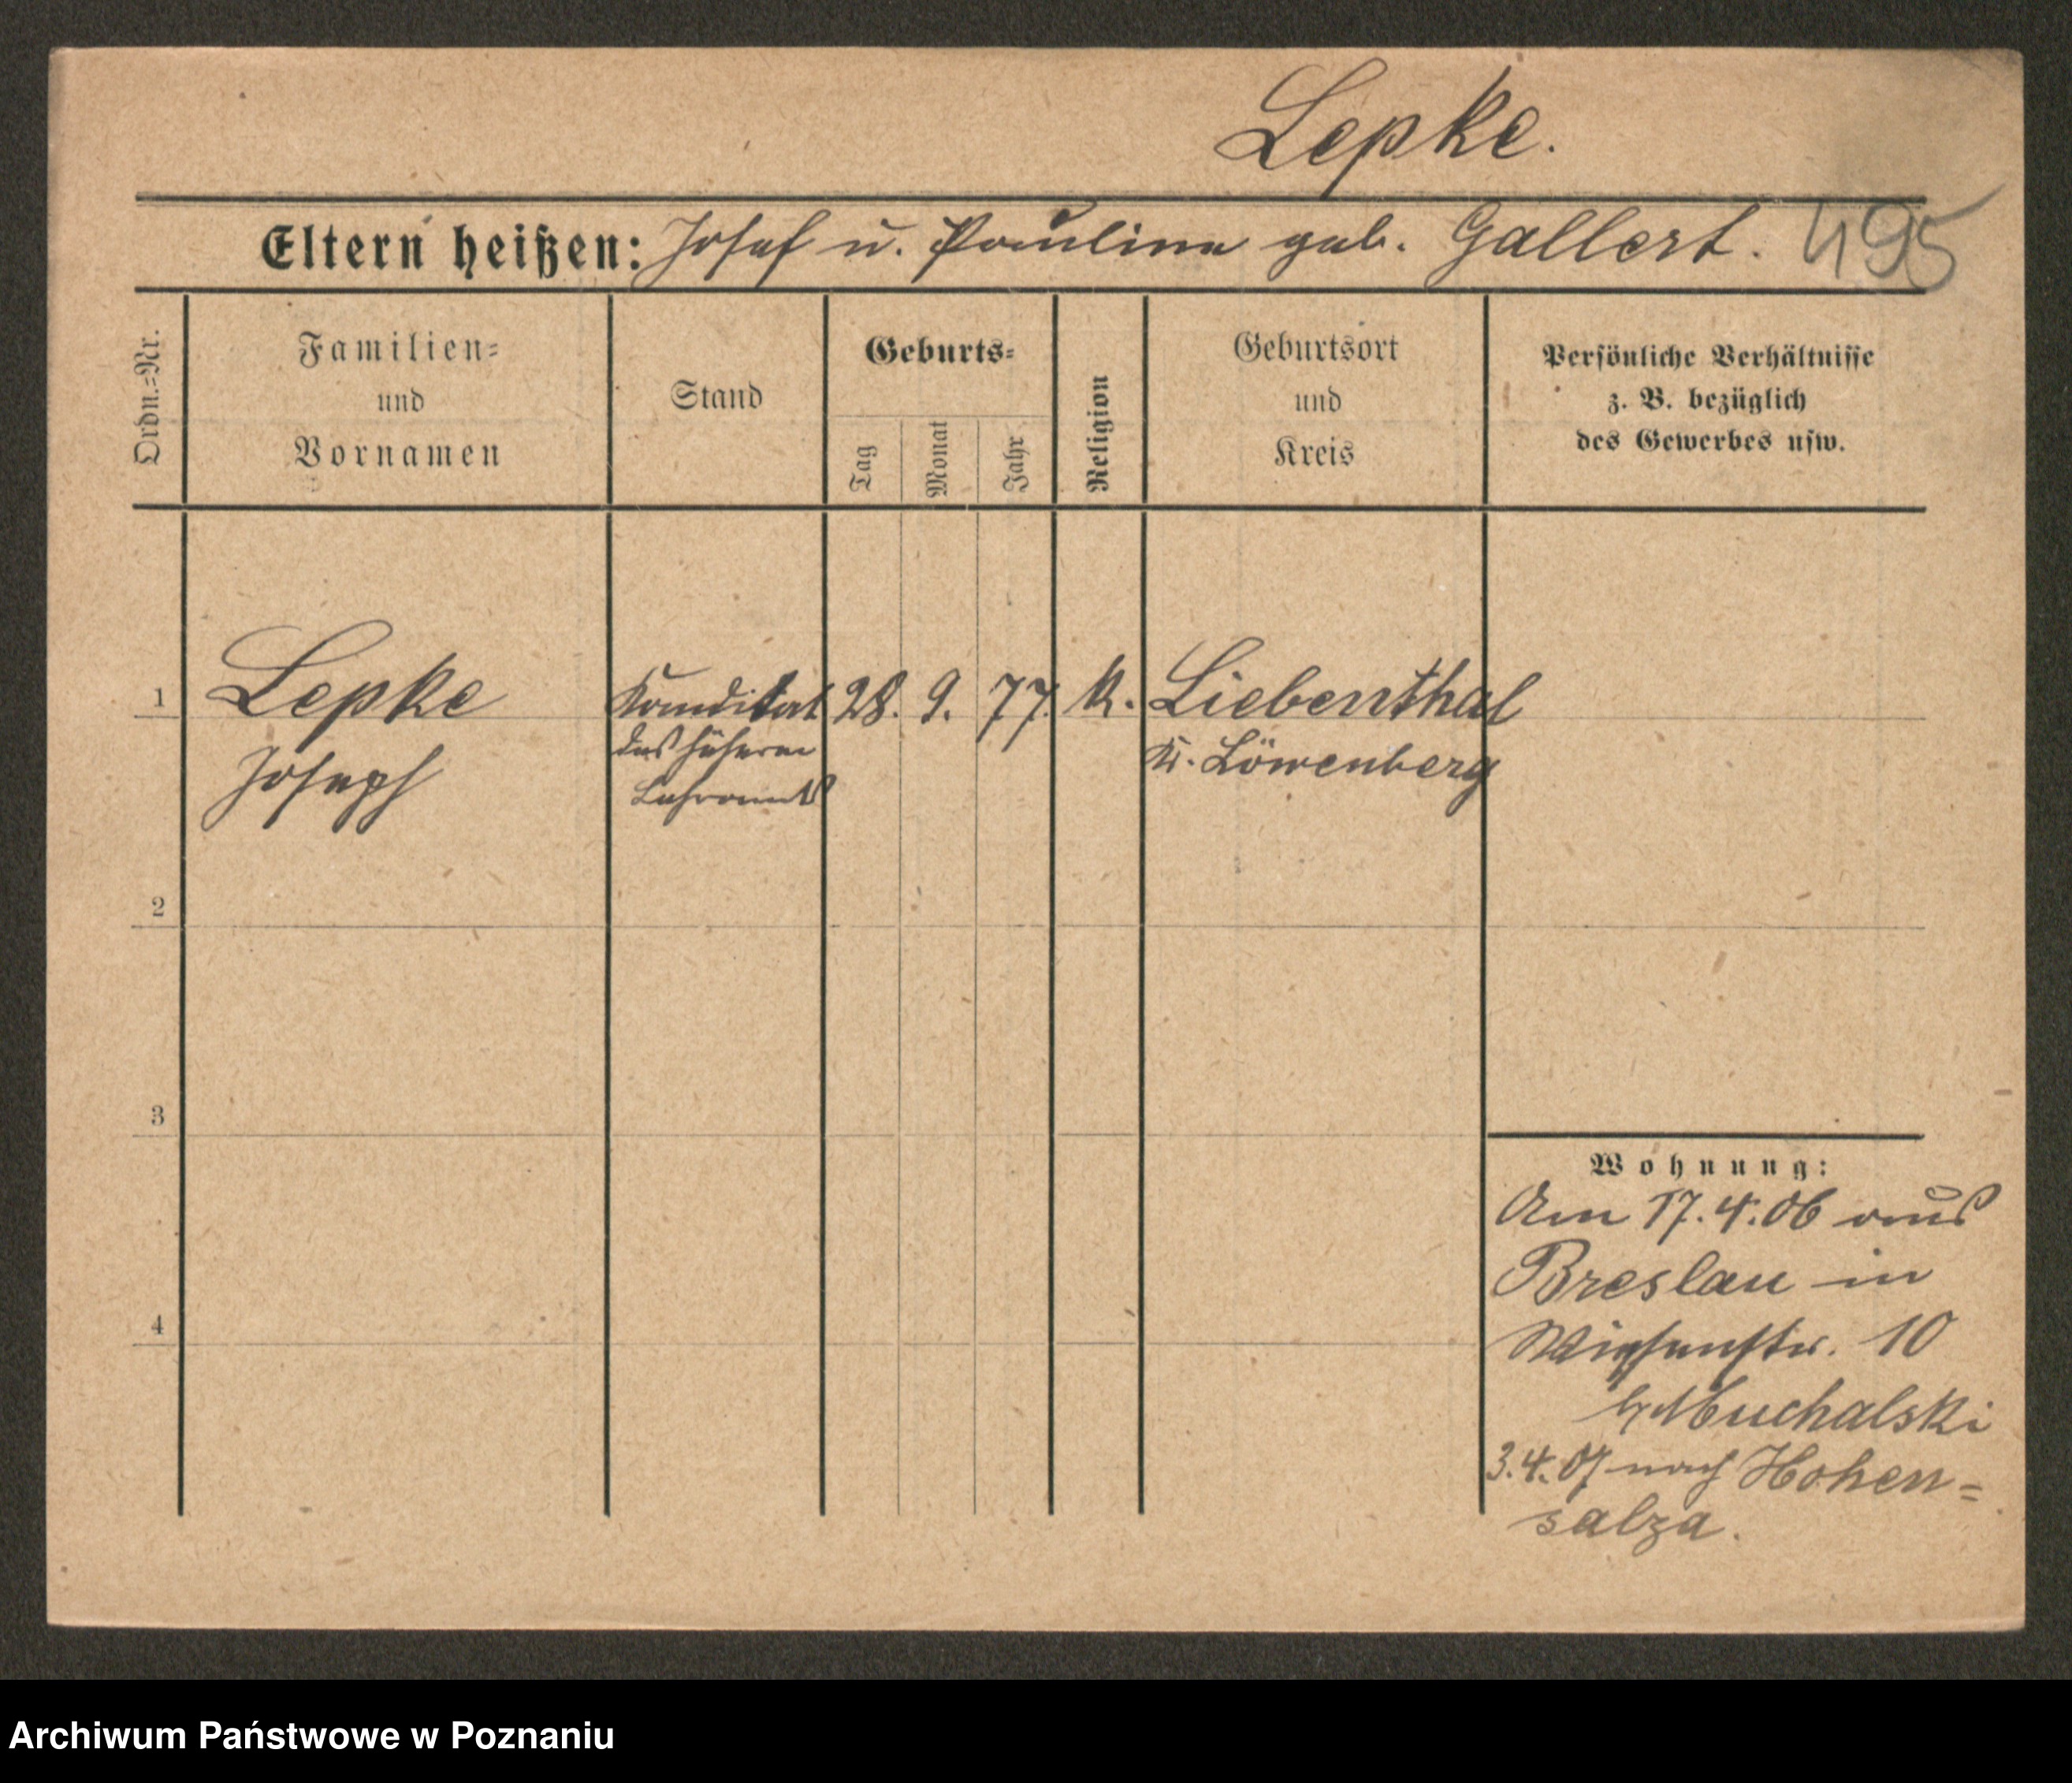 Lepke.
Eltern heißen: Josef u. Pauline geb. Gallert. 495
Ordn.-Nr.
Familien-
und
Vornamen
Stand
Geburts-
Tag
Monat
Jahr
Religion
Geburtsort
und
Kreis
Persönliche Verhältnisse
z. B. bezüglich
des Gewerbes usw.
1 Lepke Kandidat 28. 9. 77. k. Liebenthal
Joseph des höheren Kr. Löwenberg
Lehramts
2
3
4
Wohnung:
Am 17.4.06 aus
Breslau in
Wiesenstr. 10
b/ Muchalski
3.4.07 nach Hohen=
salza.
Archiwum Państwowe w Poznaniu